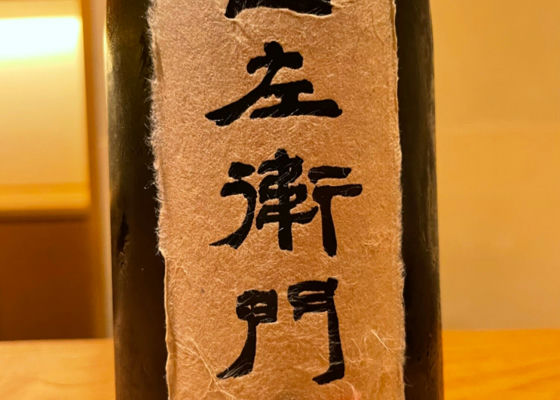 左
衛
門